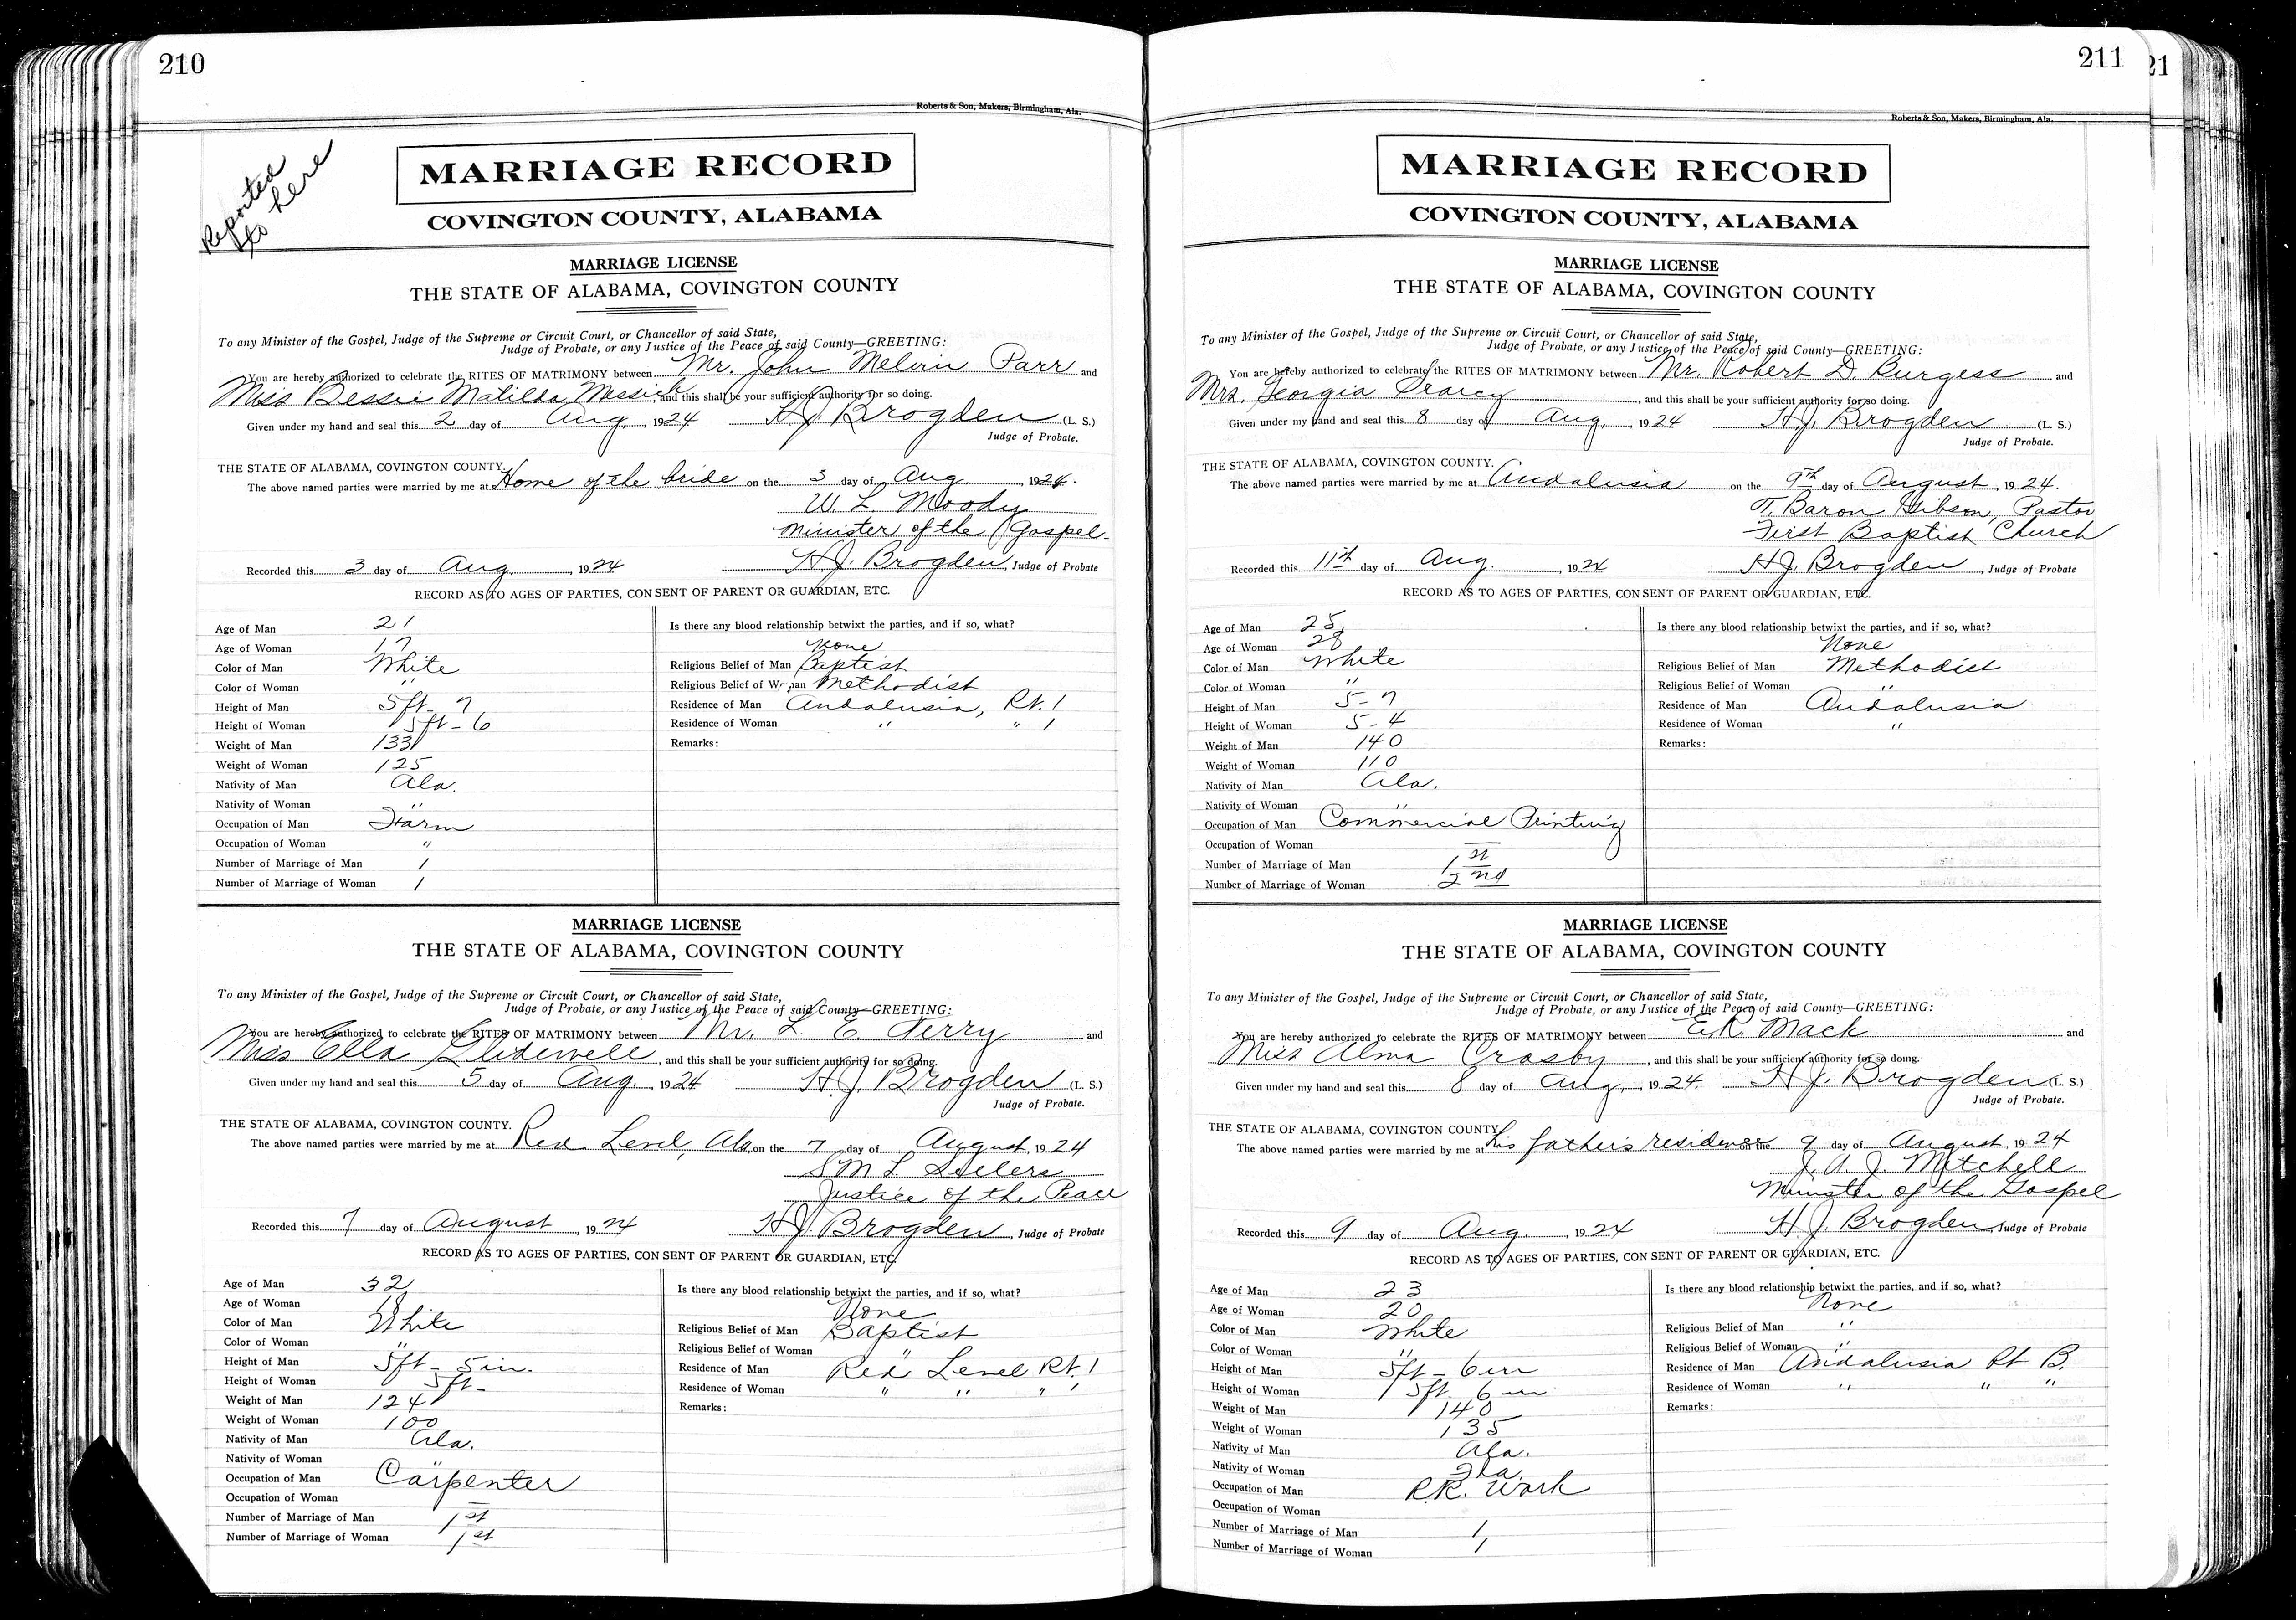 210
Roberts & Son, Makers, Birmingham, Ala.
Reported
to here
MARRIAGE RECORD
COVINGTON COUNTY, ALABAMA
MARRIAGE LICENSE
THE STATE OF ALABAMA, COVINGTON COUNTY
To any Minister of the Gospel, Judge of the Supreme or Circuit Court, or Chancellor of said State,
Judge of Probate, or any Justice of the Peace of said County—GREETING:
You are hereby authorized to celebrate the RITES OF MATRIMONY between Mr. John Melvin Parr and
Miss Bessie Matilda Messick, and this shall be your sufficient authority for so doing.
Given under my hand and seal this 2 day of Aug, 1924 H J Brogden (L. S.)
Judge of Probate.
THE STATE OF ALABAMA, COVINGTON COUNTY.
The above named parties were married by me at Home of the bride on the 3 day of Aug, 1924.
W. L. Moody
Minister of the Gospel.
Recorded this 3 day of Aug., 1924 H J. Brogden, Judge of Probate
RECORD AS TO AGES OF PARTIES, CONSENT OF PARENT OR GUARDIAN, ETC.
Age of Man 21
Age of Woman 17
Color of Man White
Color of Woman "
Height of Man 5ft- 7
Height of Woman 5ft - 6
Weight of Man 133
Weight of Woman 125
Nativity of Man Ala.
Nativity of Woman "
Occupation of Man Farm
Occupation of Woman "
Number of Marriage of Man 1
Number of Marriage of Woman 1
Is there any blood relationship betwixt the parties, and if so, what?
None
Religious Belief of Man Baptist
Religious Belief of Woman Methodist
Residence of Man Andalusia, Rt. 1
Residence of Woman " " 1
Remarks:
MARRIAGE LICENSE
THE STATE OF ALABAMA, COVINGTON COUNTY
To any Minister of the Gospel, Judge of the Supreme or Circuit Court, or Chancellor of said State,
Judge of Probate, or any Justice of the Peace of said County—GREETING:
You are hereby authorized to celebrate the RITES OF MATRIMONY between Mr. L. E. Terry and
Miss Ella Glidewell, and this shall be your sufficient authority for so doing.
Given under my hand and seal this 5 day of Aug. 1924 H. J. Brogden (L. S.)
Judge of Probate.
THE STATE OF ALABAMA, COVINGTON COUNTY.
The above named parties were married by me at Red Level, Ala, on the 7 day of August 1924
S M L Sellers
Justice of the Peace
Recorded this 7 day of August, 1924 H J Brogden, Judge of Probate
RECORD AS TO AGES OF PARTIES, CONSENT OF PARENT OR GUARDIAN, ETC.
Age of Man 32
Age of Woman 18
Color of Man White
Color of Woman "
Height of Man 5ft - 5 in.
Height of Woman 5ft-
Weight of Man 124
Weight of Woman 100
Nativity of Man Ala.
Nativity of Woman "
Occupation of Man Carpenter
Occupation of Woman —
Number of Marriage of Man 1st
Number of Marriage of Woman 1st
Is there any blood relationship betwixt the parties, and if so, what?
None
Religious Belief of Man Baptist
Religious Belief of Woman "
Residence of Man Red Level Rt. 1
Residence of Woman " " " "
Remarks:
211
21
Roberts & Son, Makers, Birmingham, Ala.
MARRIAGE RECORD
COVINGTON COUNTY, ALABAMA
MARRIAGE LICENSE
THE STATE OF ALABAMA, COVINGTON COUNTY
To any Minister of the Gospel, Judge of the Supreme or Circuit Court, or Chancellor of said State,
Judge of Probate, or any Justice of the Peace of said County—GREETING:
You are hereby authorized to celebrate the RITES OF MATRIMONY between Mr. Robert D. Burgess and
Mrs. Georgia Searcy, and this shall be your sufficient authority for so doing.
Given under my hand and seal this 8 day of Aug., 1924 H.J. Brogden (L. S.)
Judge of Probate.
THE STATE OF ALABAMA, COVINGTON COUNTY.
The above named parties were married by me at Andalusia on the 9th day of August, 1924.
T. Baron Gibson, Pastor
First Baptist Church
Recorded this 11th day of Aug., 1924 H J. Brogden, Judge of Probate
RECORD AS TO AGES OF PARTIES, CONSENT OF PARENT OR GUARDIAN, ETC.
Age of Man 25
Age of Woman 28
Color of Man White
Color of Woman "
Height of Man 5-7
Height of Woman 5-4
Weight of Man 140
Weight of Woman 110
Nativity of Man Ala.
Nativity of Woman "
Occupation of Man Commercial Printing
Occupation of Woman —
Number of Marriage of Man 1st
Number of Marriage of Woman 2nd
Is there any blood relationship betwixt the parties, and if so, what?
None
Religious Belief of Man Methodist
Religious Belief of Woman "
Residence of Man Andalusia
Residence of Woman "
Remarks:
MARRIAGE LICENSE
THE STATE OF ALABAMA, COVINGTON COUNTY
To any Minister of the Gospel, Judge of the Supreme or Circuit Court, or Chancellor of said State,
Judge of Probate, or any Justice of the Peace of said County—GREETING:
You are hereby authorized to celebrate the RITES OF MATRIMONY between E.R. Mack and
Miss Alma Crosby, and this shall be your sufficient authority for so doing.
Given under my hand and seal this 8 day of Aug, 1924. H J. Brogden (L. S.)
Judge of Probate.
THE STATE OF ALABAMA, COVINGTON COUNTY
The above named parties were married by me at his father's residence on the 9 day of August, 1924
J. A. J. Mitchell
Minister of the Gospel
Recorded this 9 day of Aug., 1924 H J. Brogden, Judge of Probate
RECORD AS TO AGES OF PARTIES, CONSENT OF PARENT OR GUARDIAN, ETC.
Age of Man 23
Age of Woman 20
Color of Man White
Color of Woman "
Height of Man 5ft - 6 in
Height of Woman 5ft 6 in
Weight of Man 140
Weight of Woman 135
Nativity of Man Ala.
Nativity of Woman Fla.
Occupation of Man R.R. Work
Occupation of Woman
Number of Marriage of Man 1
Number of Marriage of Woman 1
Is there any blood relationship betwixt the parties, and if so, what?
None
Religious Belief of Man "
Religious Belief of Woman "
Residence of Man Andalusia Rt B.
Residence of Woman " " "
Remarks: